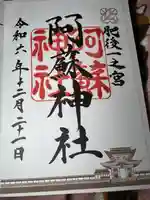 肥後一之宮
阿蘇神社
阿蘇神社
令和六年十二月二十一日